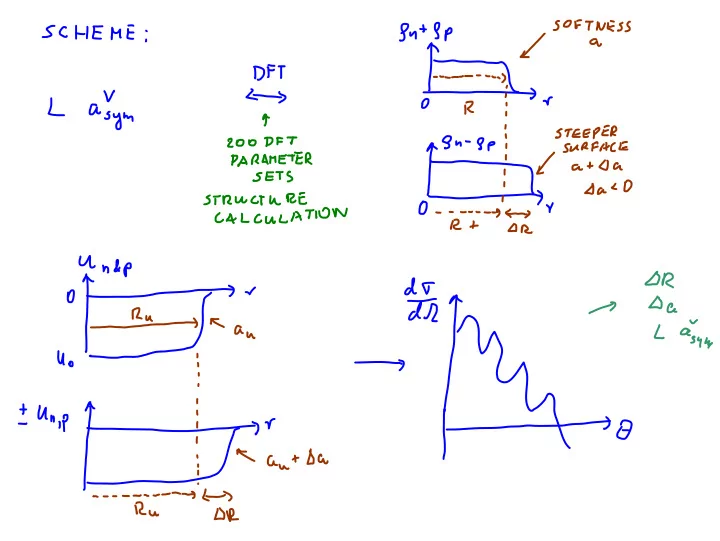 SCHEME:
L a^V_sym
DFT
200 DFT
PARAMETER
SETS
STRUCTURE
CALCULATION
ρn + ρp
SOFTNESS
a
0
R
r
ρn - ρp
STEEPER
SURFACE
a + Δa
Δa < 0
0
r
R +
ΔR
U n&p
0
r
Ru
au
U0
± Un,p
r
au + Δa
Ru
ΔR
dσ
dΩ
θ
ΔR
Δa
L a^v_sym